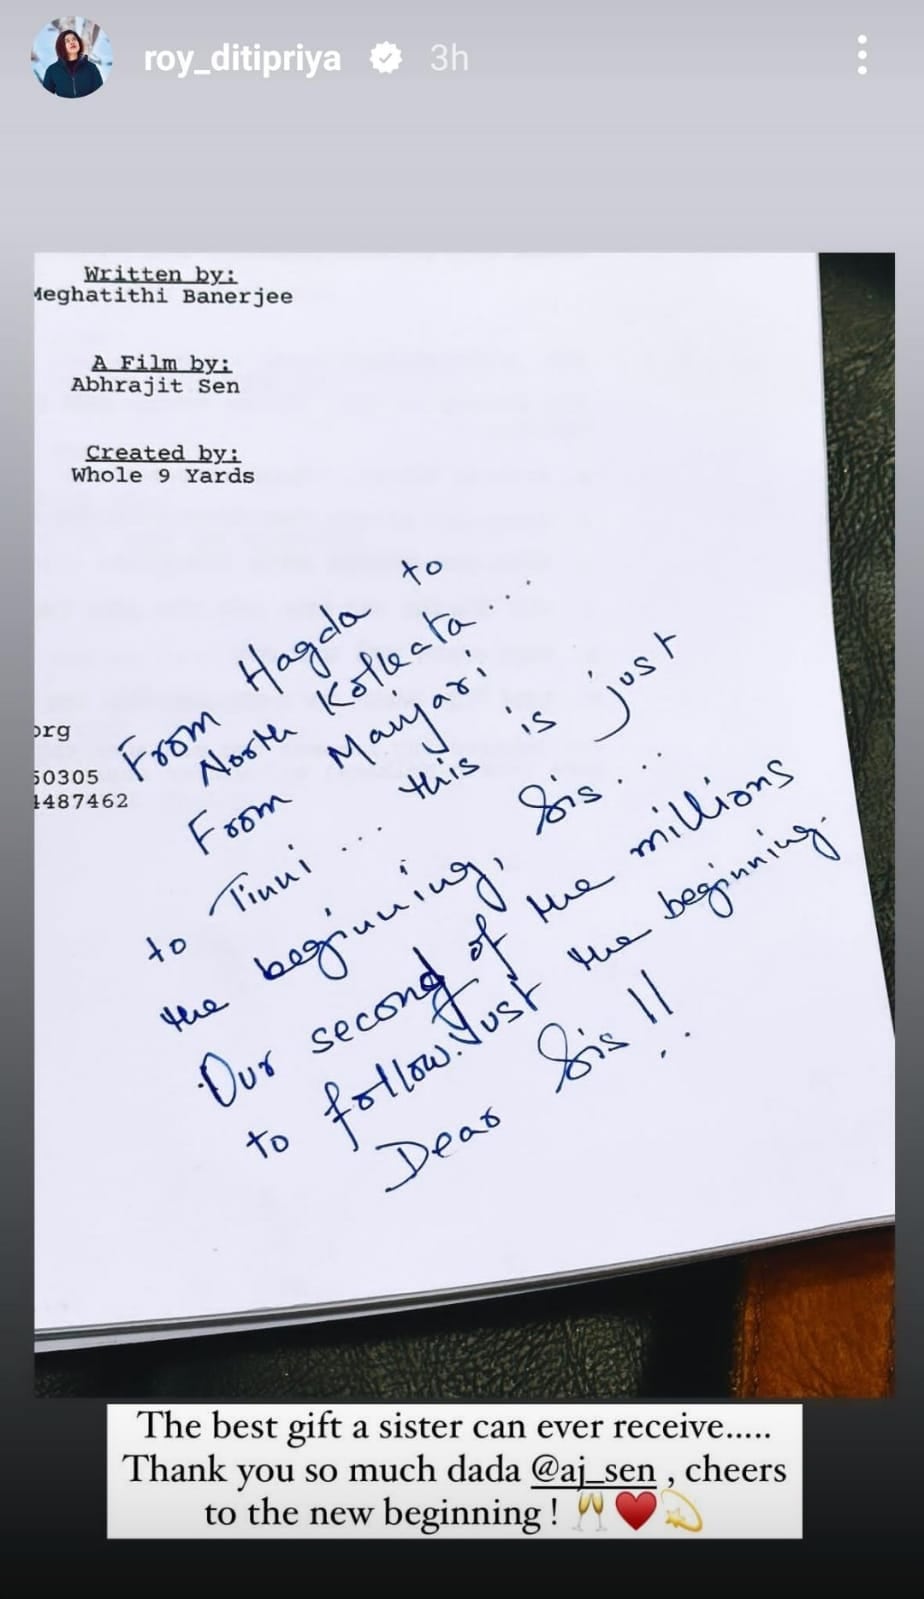 roy_ditipriya 3h
Written by:
Meghatithi Banerjee
A Film by:
Abhrajit Sen
Created by:
Whole 9 Yards
org
50305
4487462
From Hagda to
North Kolkata...
From Manjari
to Tinni... this is just
the beginning, Sis...
Our second of the millions
to follow. Just the beginning.
Dear Sis!!
The best gift a sister can ever receive.....
Thank you so much dada @aj_sen , cheers
to the new beginning ! 🥂❤️💫